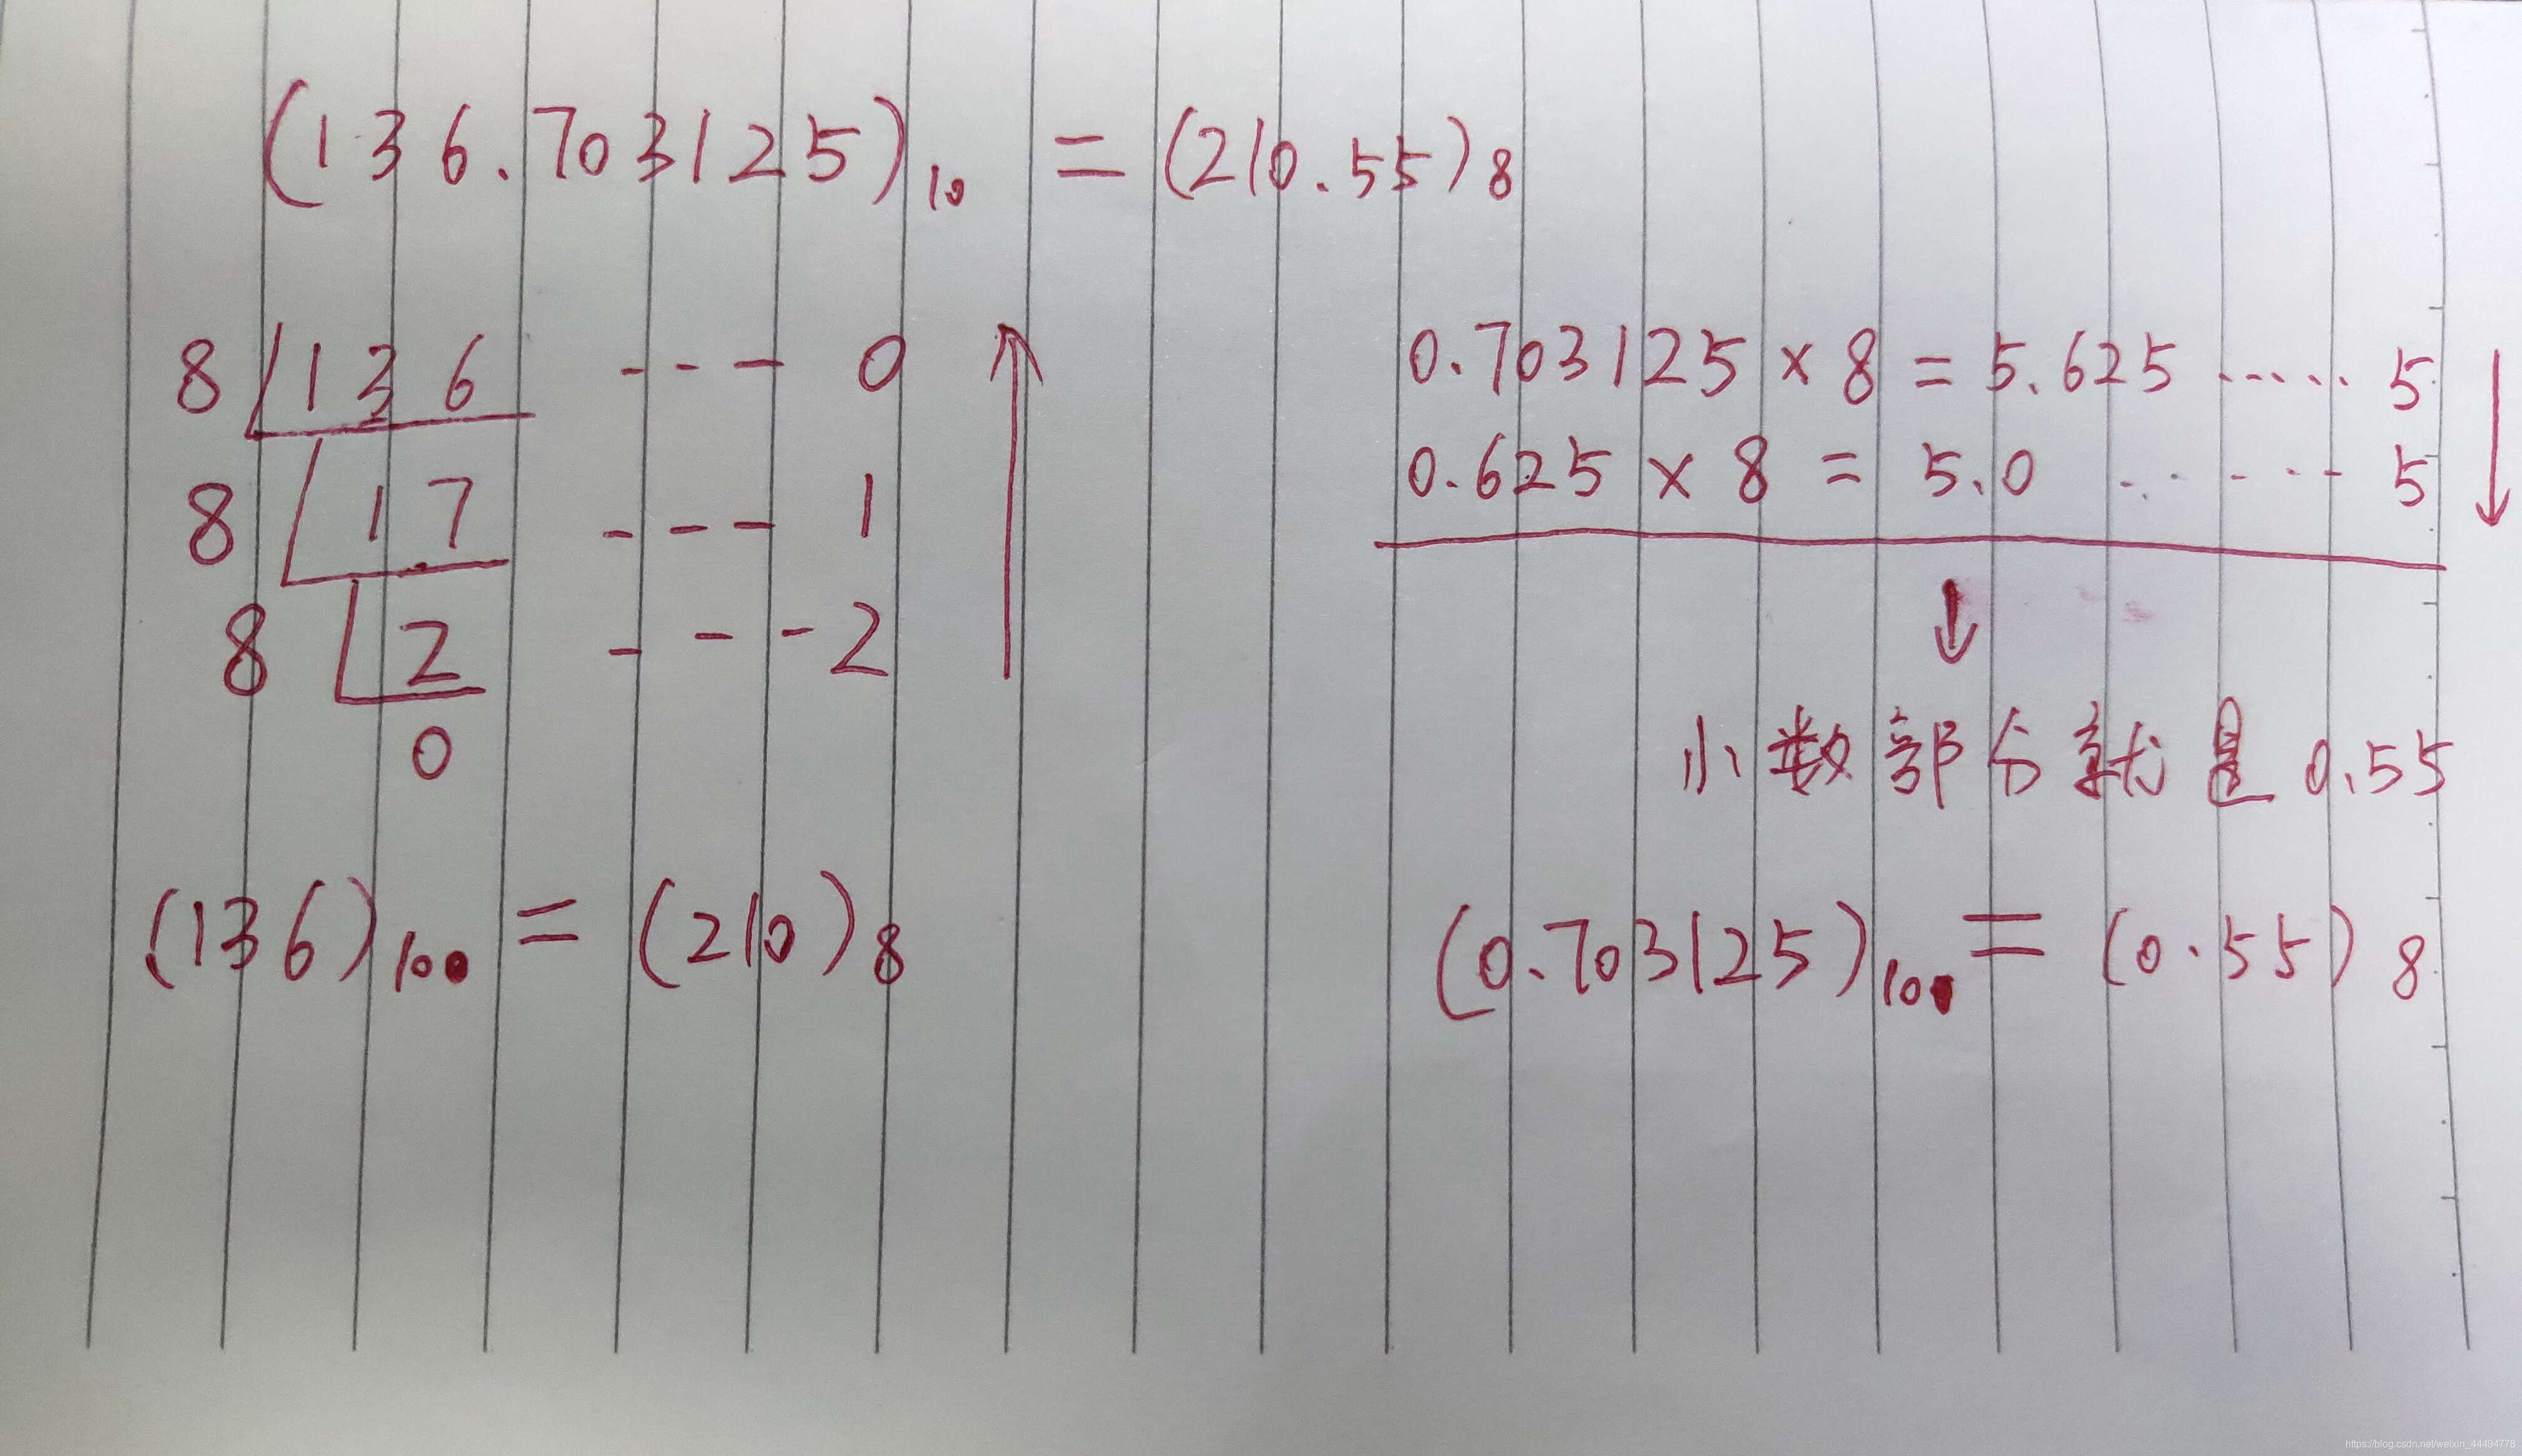 (136.703125)10 = (210.55)8
8 136 --- 0
8 17 --- 1
8 2 --- 2
0
(136)10 = (210)8
0.703125 × 8 = 5.625 ...... 5
0.625 × 8 = 5.0 ...... 5
小数部分就是 0.55
(0.703125)10 = (0.55)8
https://blog.csdn.net/weixin_44494778